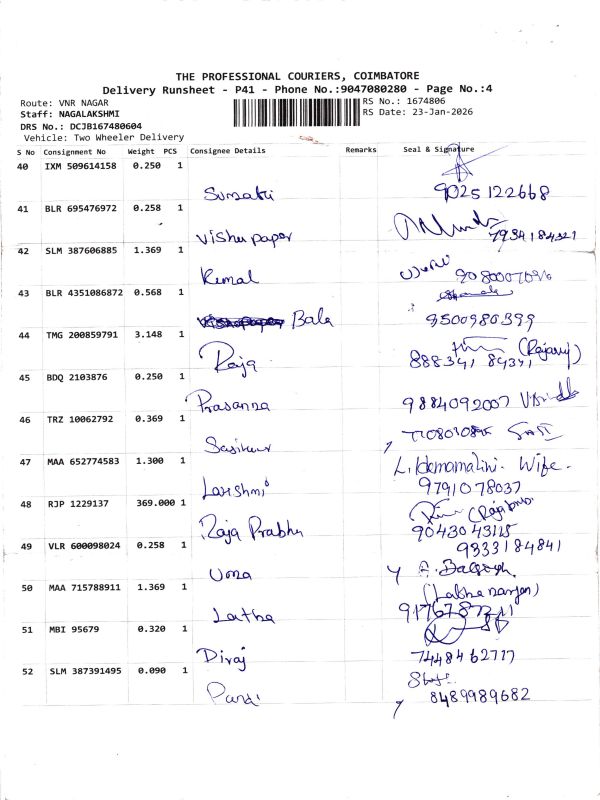 THE PROFESSIONAL COURIERS, COIMBATORE
Delivery Runsheet - P41 - Phone No.:9047080280 - Page No.:4
Route: VNR NAGAR
RS No.: 1674806
Staff: NAGALAKSHMI
RS Date: 23-Jan-2026
DRS No.: DCJB167480604
Vehicle: Two Wheeler Delivery
S No Consignment No Weight PCS Consignee Details Remarks Seal & Signature
40 IXM 509614158 0.250 1
Sumathi 9025122668
41 BLR 695476972 0.258 1
Vishu papar 7934184321
42 SLM 387606885 1.369 1
Kemal
43 BLR 4351086872 0.568 1
Bala 9500980399
44 TMG 200859791 3.148 1
Raja
45 BDQ 2103876 0.250 1
Prasanna 9884092007
46 TRZ 10062792 0.369 1
47 MAA 652774583 1.300 1
Wife.
Lakshmi 9791078037
48 RJP 1229137 369.000 1
Raja Prabhu
49 VLR 600098024 0.258 1
9333184841
Uma
50 MAA 715788911 1.369 1
Latha
51 MBI 95679 0.320 1
Diraj 7448462717
52 SLM 387391495 0.090 1
Pandi 8489989682